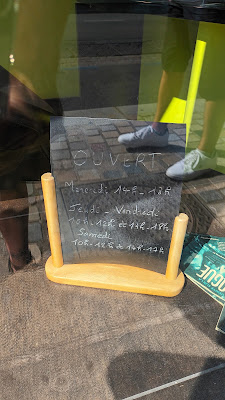 OUVERT
Mercredi 14h-18h
Jeudi - Vendredi
10h-12h de 14h-18h
Samedi
10h-12h de 14h-17h
OGUE